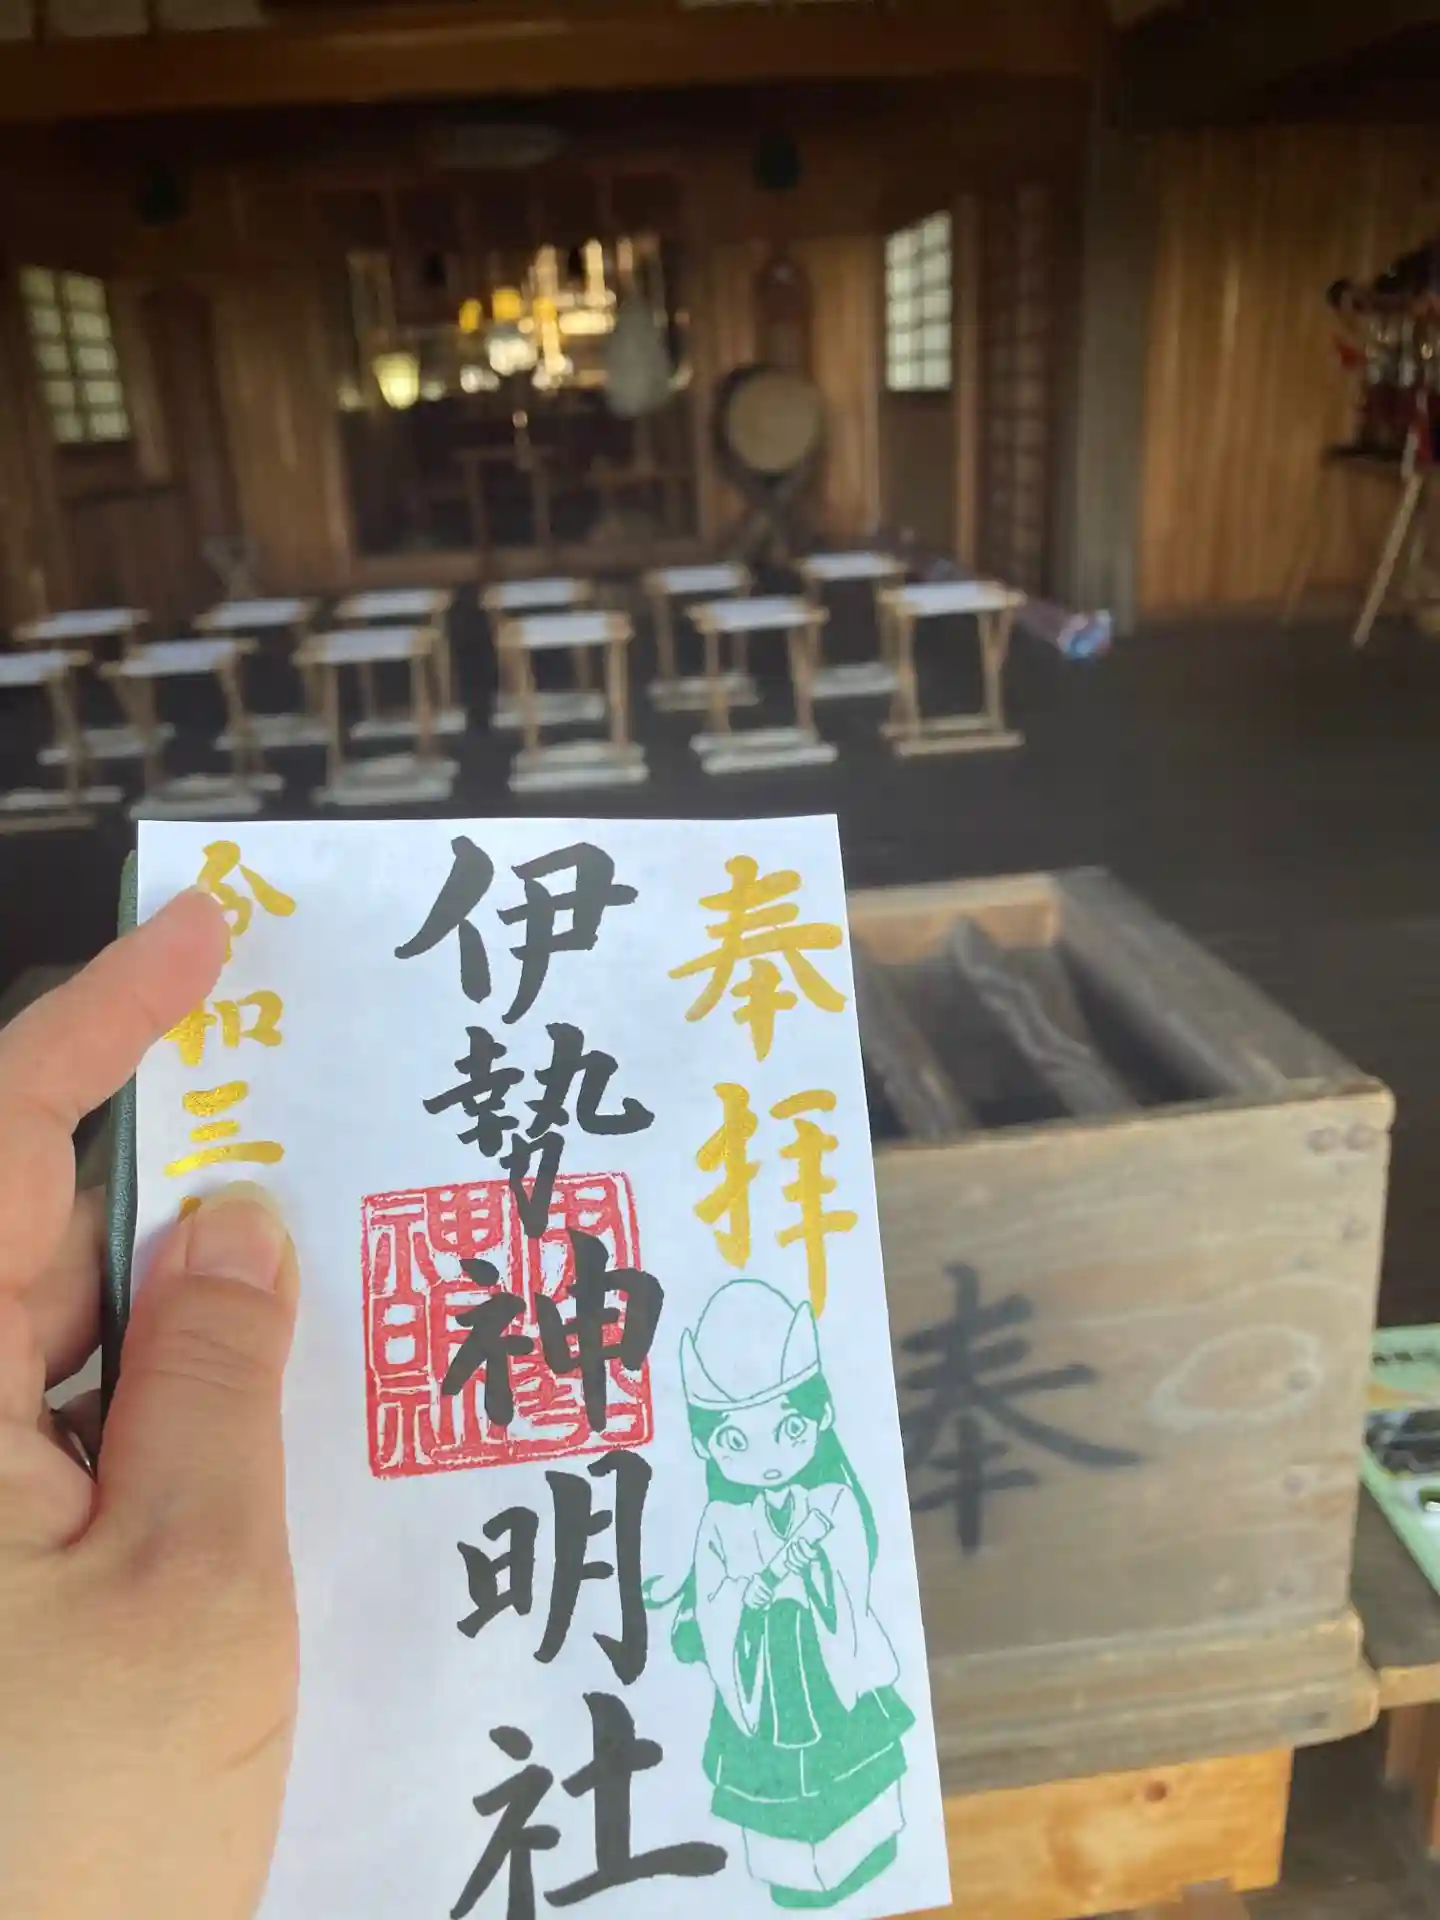 奉拝
伊勢神明社
令和三
伊勢
神明社
奉